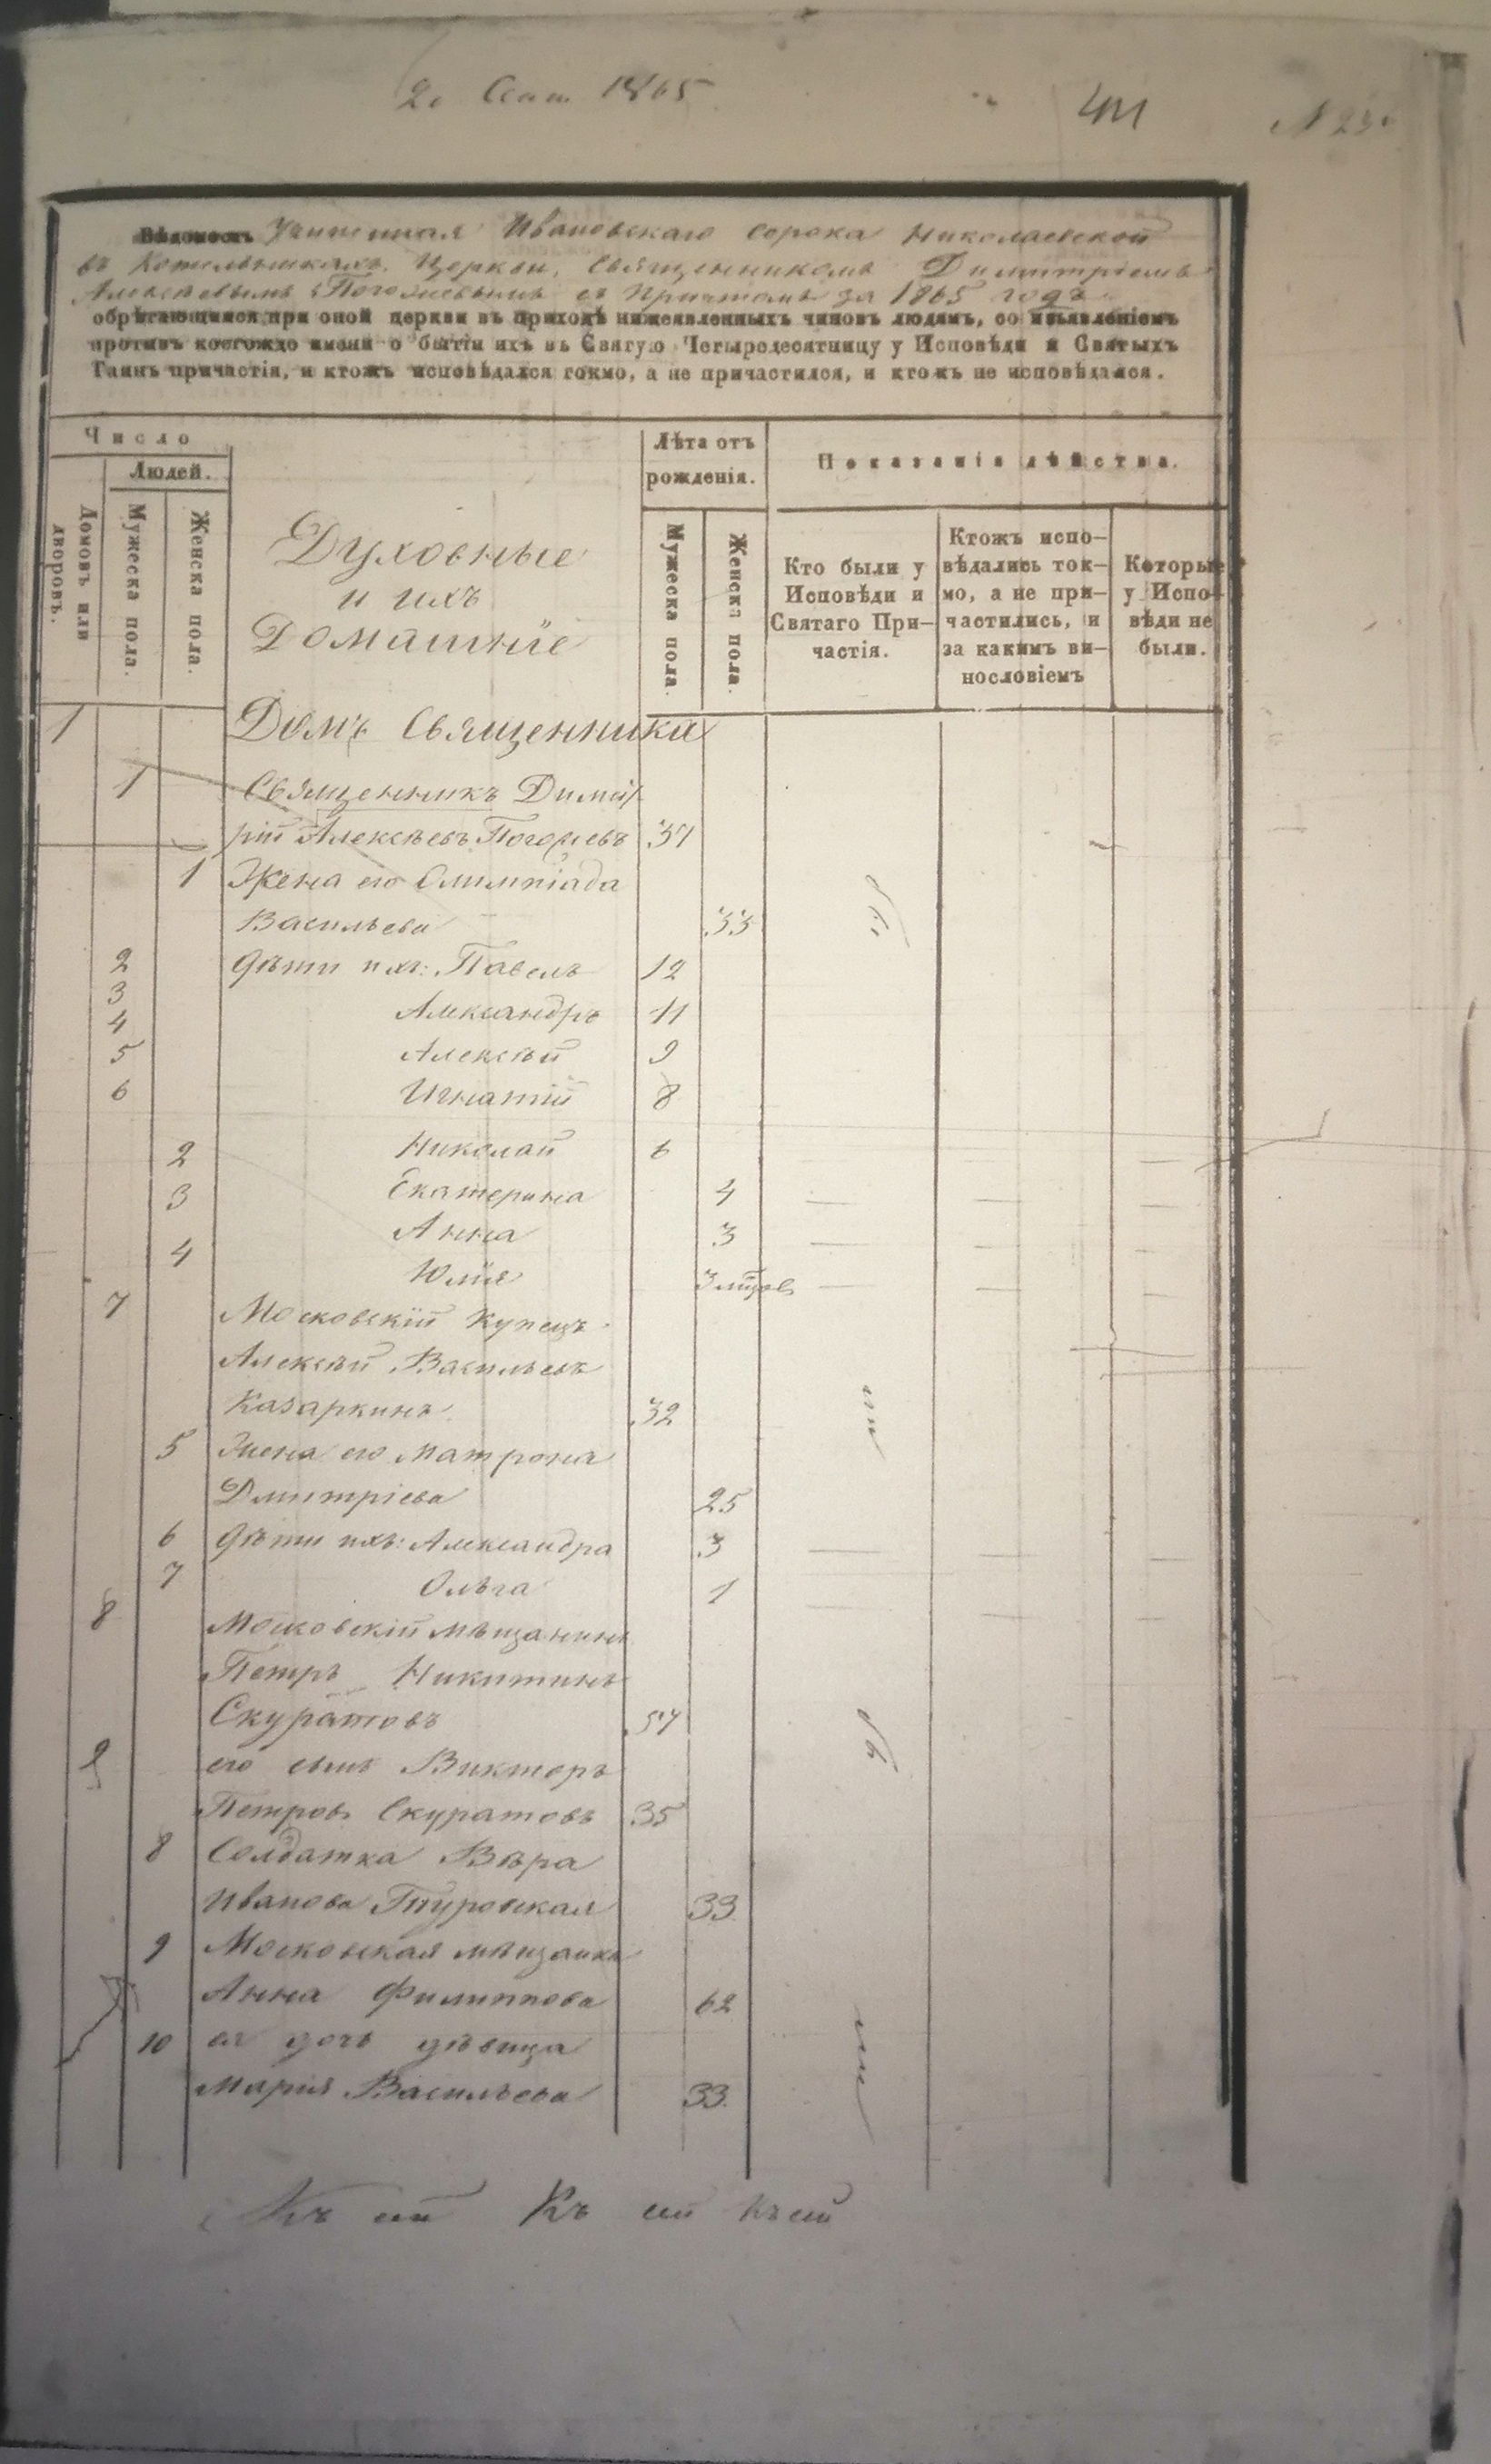 1865
411
Вѣдомость Учиненная Ивановскаго сорока Николаевской
въ Котельникахъ Церкви, Священникомъ Димитріемъ
Алексѣевымъ Погожевымъ съ Причтомъ за 1865 годъ
обрѣтающимся при оной церкви въ приходѣ нижеявленныхъ чиновъ людямъ, со изъявленіемъ
противъ коегождо имени о бытіи ихъ въ Святую Четыредесятницу у Исповѣди и Святыхъ
Таинъ причастія, и ктожъ исповѣдался токмо, а не причастился, и ктожъ не исповѣдался.
Число
Людей.
Домовъ или дворовъ.
Мужеска пола.
Женска пола.
Духовные
и ихъ
Домашніе
Лѣта отъ
рожденія.
Мужеска пола.
Женска пола.
Показанія дѣйства.
Кто были у
Исповѣди и
Святаго При-
частія.
Ктожъ испо-
вѣдались ток-
мо, а не при-
частились, и
за какимъ ви-
нословіемъ
Которые
у Испо-
вѣди не
были.
1 Домъ Священника
1 Священникъ Димит
рій Алексѣевъ Погожевъ 37
1 Жена его Олимпіада
Васильева 33
2 Дѣти ихъ: Павелъ 12
3 Александръ 11
4 Алексѣй 9
5 Игнатій 8
6 Николай 6
2 Екатерина 4
3 Анна 3
4 Юлія 3 мѣсъ
7 Московскій Купецъ
Алексѣй Васильевъ
Казаркинъ 32
5 Жена его Матрона
Дмитріева 25
6 Дѣти ихъ: Александра 3
7 Ольга 1
8 Московскій мѣщанинъ
Петръ Никитинъ
Скуратовъ 57
9 его сынъ Викторъ
Петровъ Скуратовъ 35
8 Солдатка Вѣра
Иванова Туровская 33
9 Московская мѣщанка
Анна Филиппова 62
10 ея дочь дѣвица
Марія Васильева 33